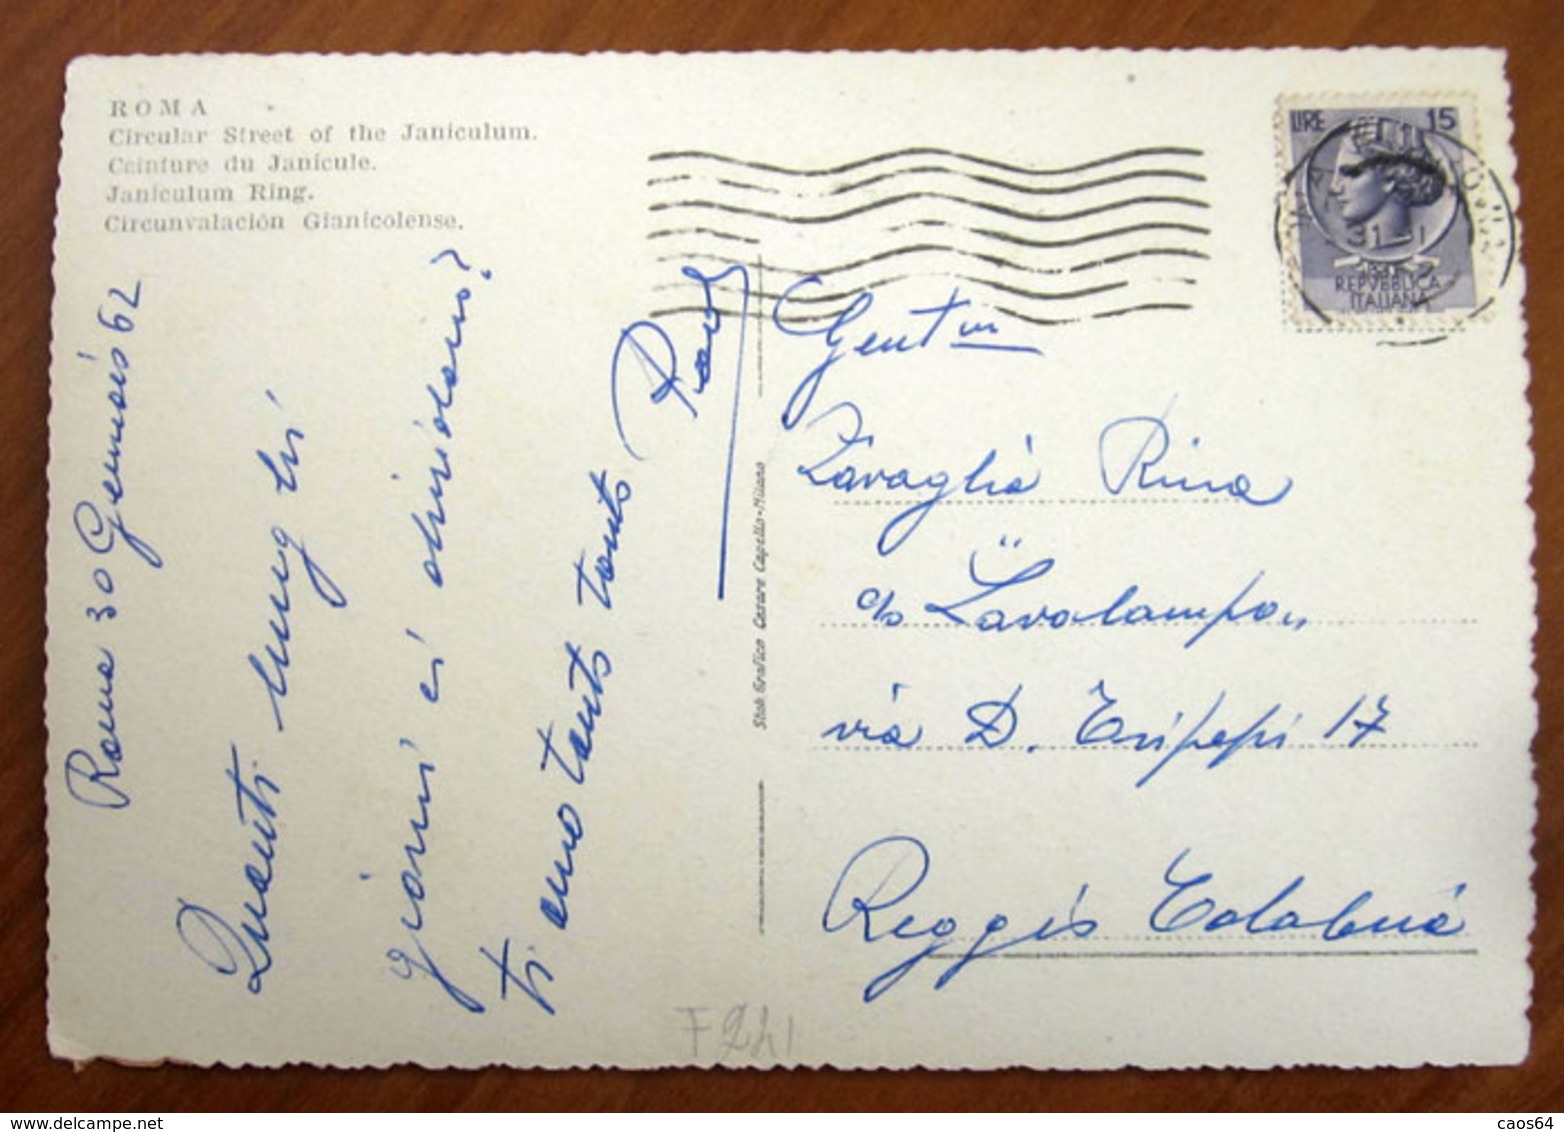 ROMA
Circular Street of the Janiculum.
Ceinture du Janicule.
Janiculum Ring.
Circunvalación Gianicolense.
Roma 30 Gennaio 62
Quanti lunghi
giorni ci dividono?
ti amo tanto tanto
Stab. Grafico Cesare Capello - Milano
LIRE 15
31-1
REPVBBLICA
ITALIANA
Gent ma
Zavaglia Rina
c/o Lavalampo
via D. Tripepi 17
Reggio Calabria
F241
delcampe.net
caos64